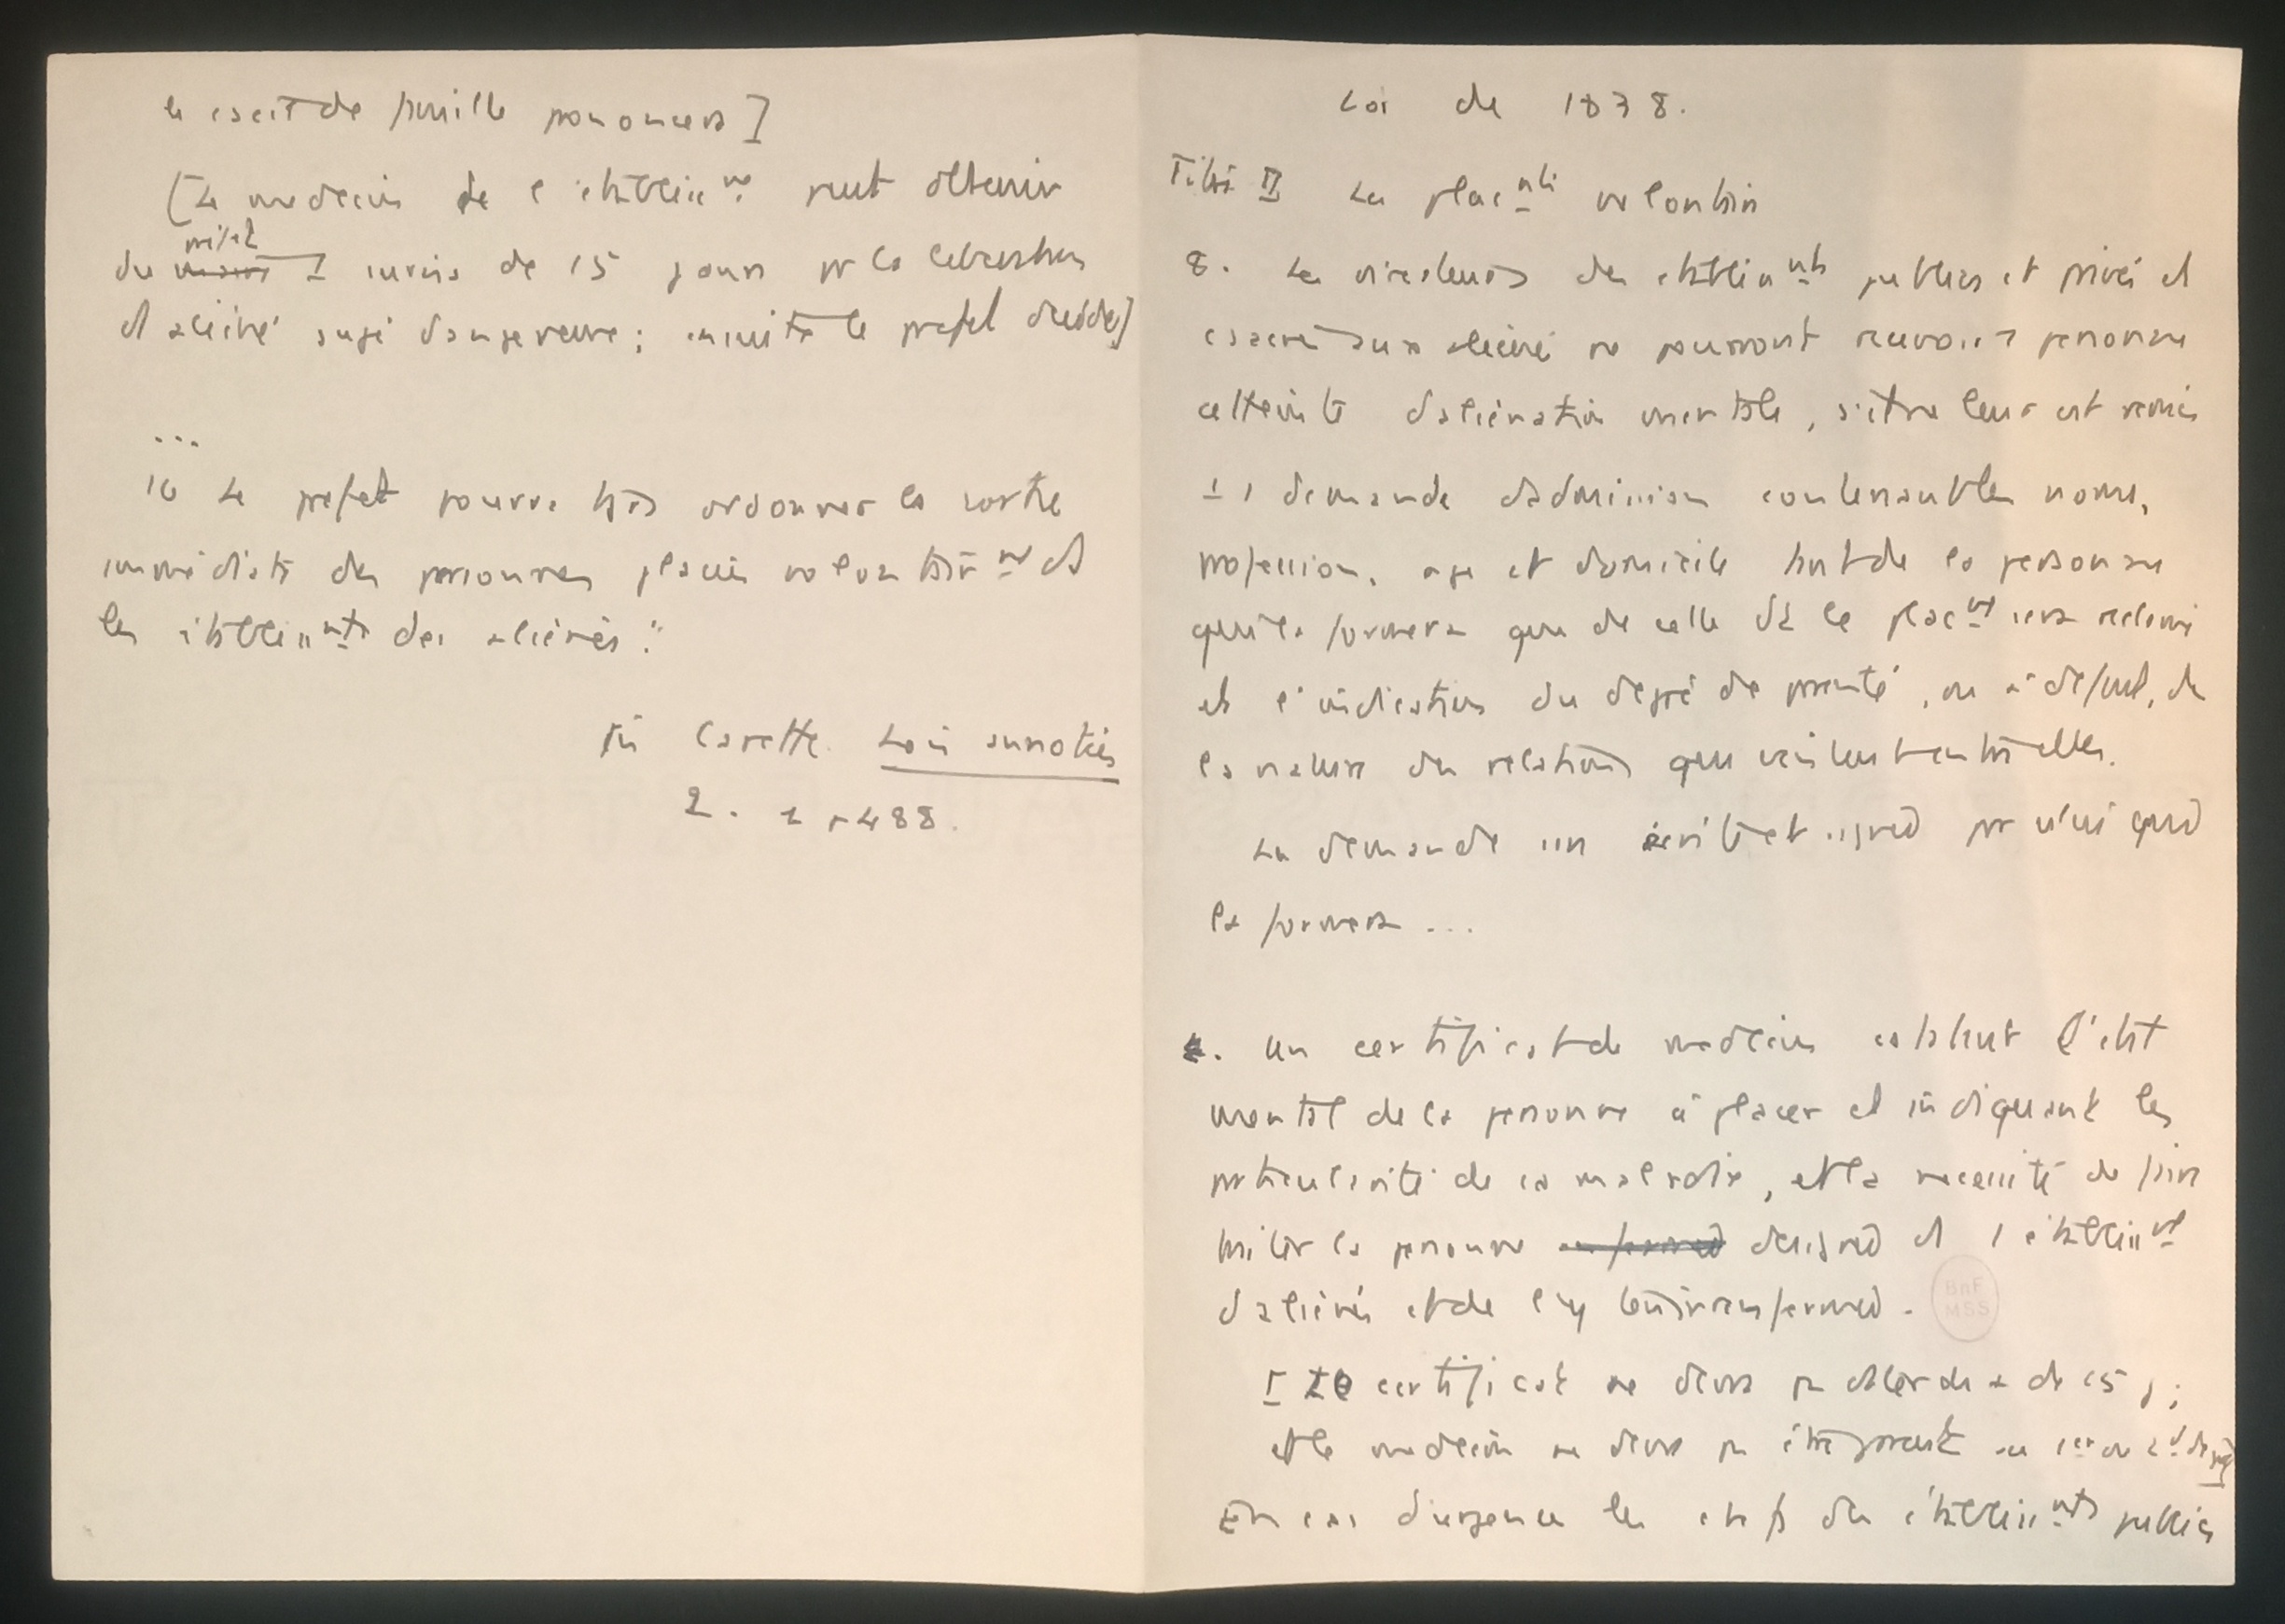 le conseil de famille prononcera]
[Le medecin de l'etablissmt peut obtenir
du maire préfet I sursis de 15 jours pr la libération
d aliéné jugé dangereux ; ensuite le préfet décide]
...
16 Le prefet pourra tjrs ordonner la sortie
immédiate des personnes placées volontairmt ds
les établissmts des aliénés."
in Carette Lois annotées
2. 1 p 488.
Loi de 1838.
Titre II Les placmts volontaires
8. Les directeurs des établissmts publics et privés et
consacrés aux aliénés ne pourront recevoir 1 personne
atteinte d'aliénation mentale, s'il ne leur est remis
1 1 demande d'admission contenant les noms,
profession, age et domicile tant de la personne
qui la formera que de celle dt le placmt sera réclamé
et l'indication du degré de parenté, ou à défaut, de
la nature des relations qui existent entre elles.
La demande sera écrite et signée par celui qui
la formera ...
2. Un certificat de medecin constatant l'état
mental de la personne à placer et indiquant les
particularités de sa maladie, et la nécessité de faire
traiter la personne désignée ds 1 établissmt
d'aliénés et de l'y tenir renfermée.
[Le certificat ne devra pas dater de + de 15 j ;
et le medecin ne devra pas être parent au 1er ou 2d degré]
En cas d'urgence les chefs des établissmts publics
BnF
MSS